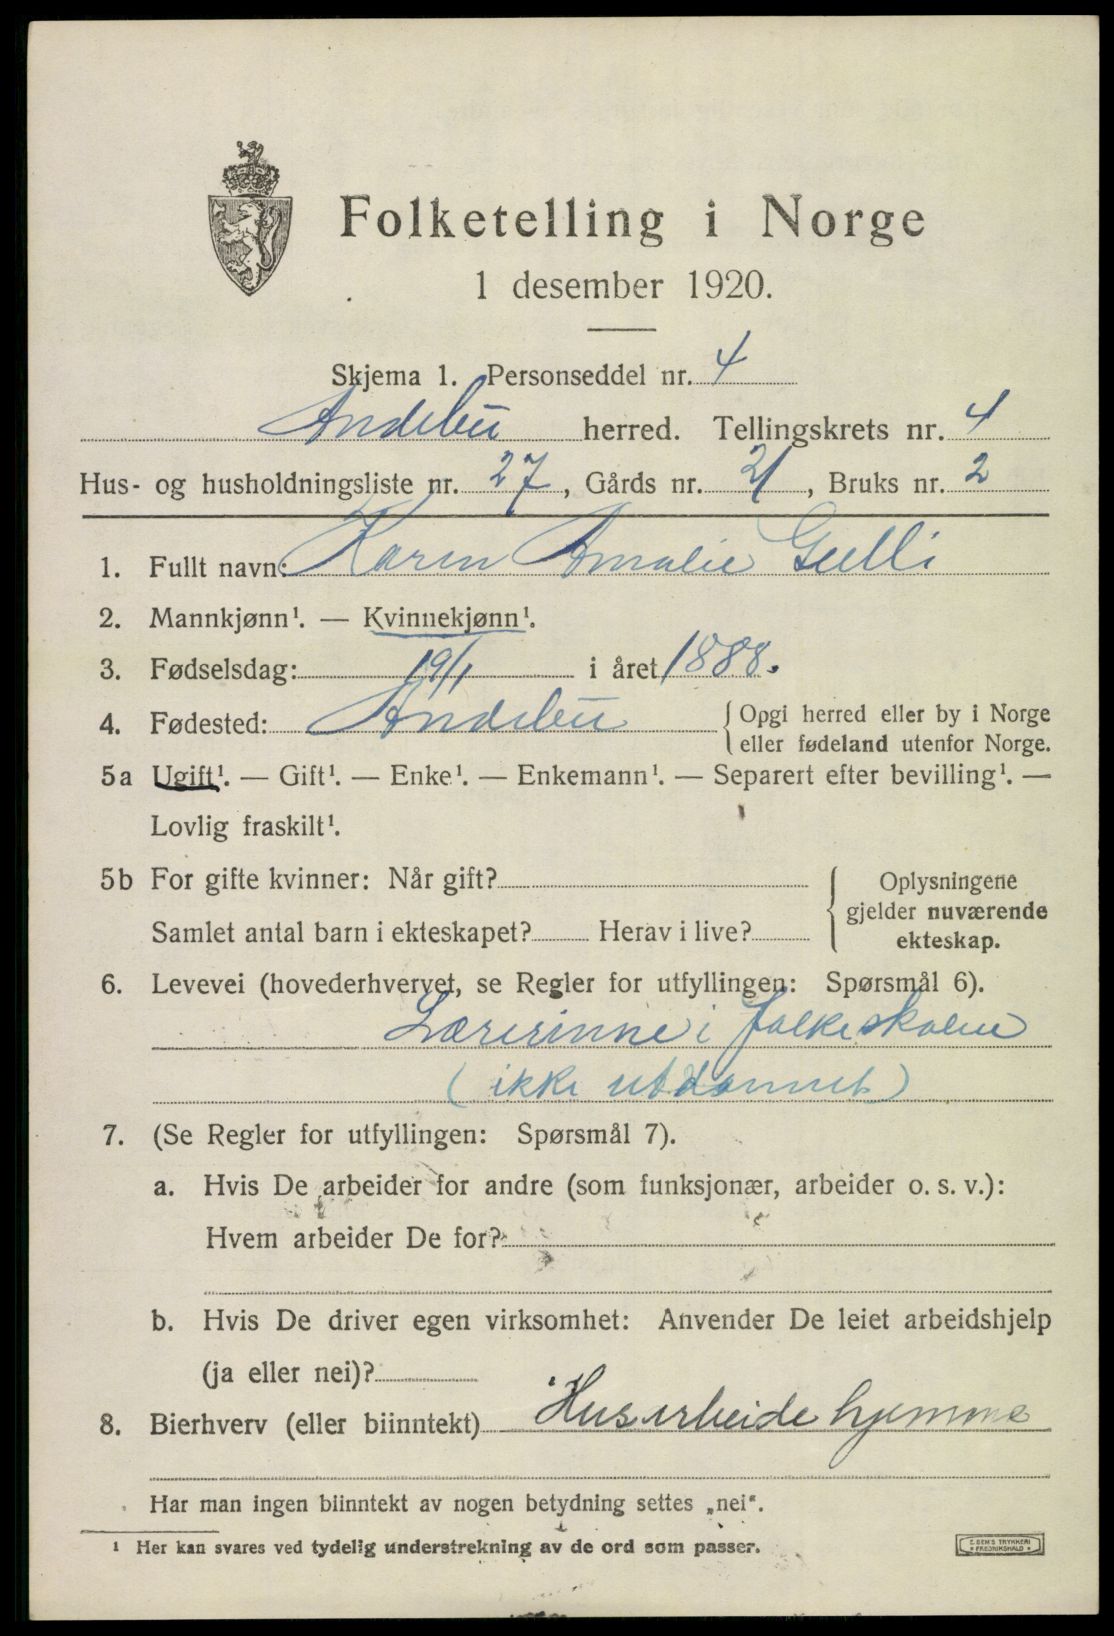 Folketelling i Norge
1 desember 1920.
Skjema 1. Personseddel nr. 4
Andebu herred. Tellingskrets nr. 4
Hus- og husholdningsliste nr. 27, Gårds nr. 21, Bruks nr. 2
1. Fullt navn: Karen Amalie Gulli
2. Mannkjønn¹. — Kvinnekjønn¹.
3. Fødselsdag: 19/1 i året 1888.
4. Fødested: Andebu { Opgi herred eller by i Norge
eller fødeland utenfor Norge.
5a Ugift¹. — Gift¹. — Enke¹. — Enkemann¹. — Separert efter bevilling¹. —
Lovlig fraskilt¹.
5b For gifte kvinner: Når gift?
Samlet antal barn i ekteskapet? Herav i live?
{ Oplysningene
gjelder nuværende
ekteskap.
6. Levevei (hovederhvervet, se Regler for utfyllingen: Spørsmål 6).
Lærerinne i folkeskolen
(ikke utdannet)
7. (Se Regler for utfyllingen: Spørsmål 7).
a. Hvis De arbeider for andre (som funksjonær, arbeider o. s. v.):
Hvem arbeider De for?
b. Hvis De driver egen virksomhet: Anvender De leiet arbeidshjelp
(ja eller nei)?
8. Bierhverv (eller biinntekt) Husarbeide hjemme
Har man ingen biinntekt av nogen betydning settes „nei“.
¹ Her kan svares ved tydelig understrekning av de ord som passer.
E. SEM'S TRYKKERI
* FREDRIKSHALD *